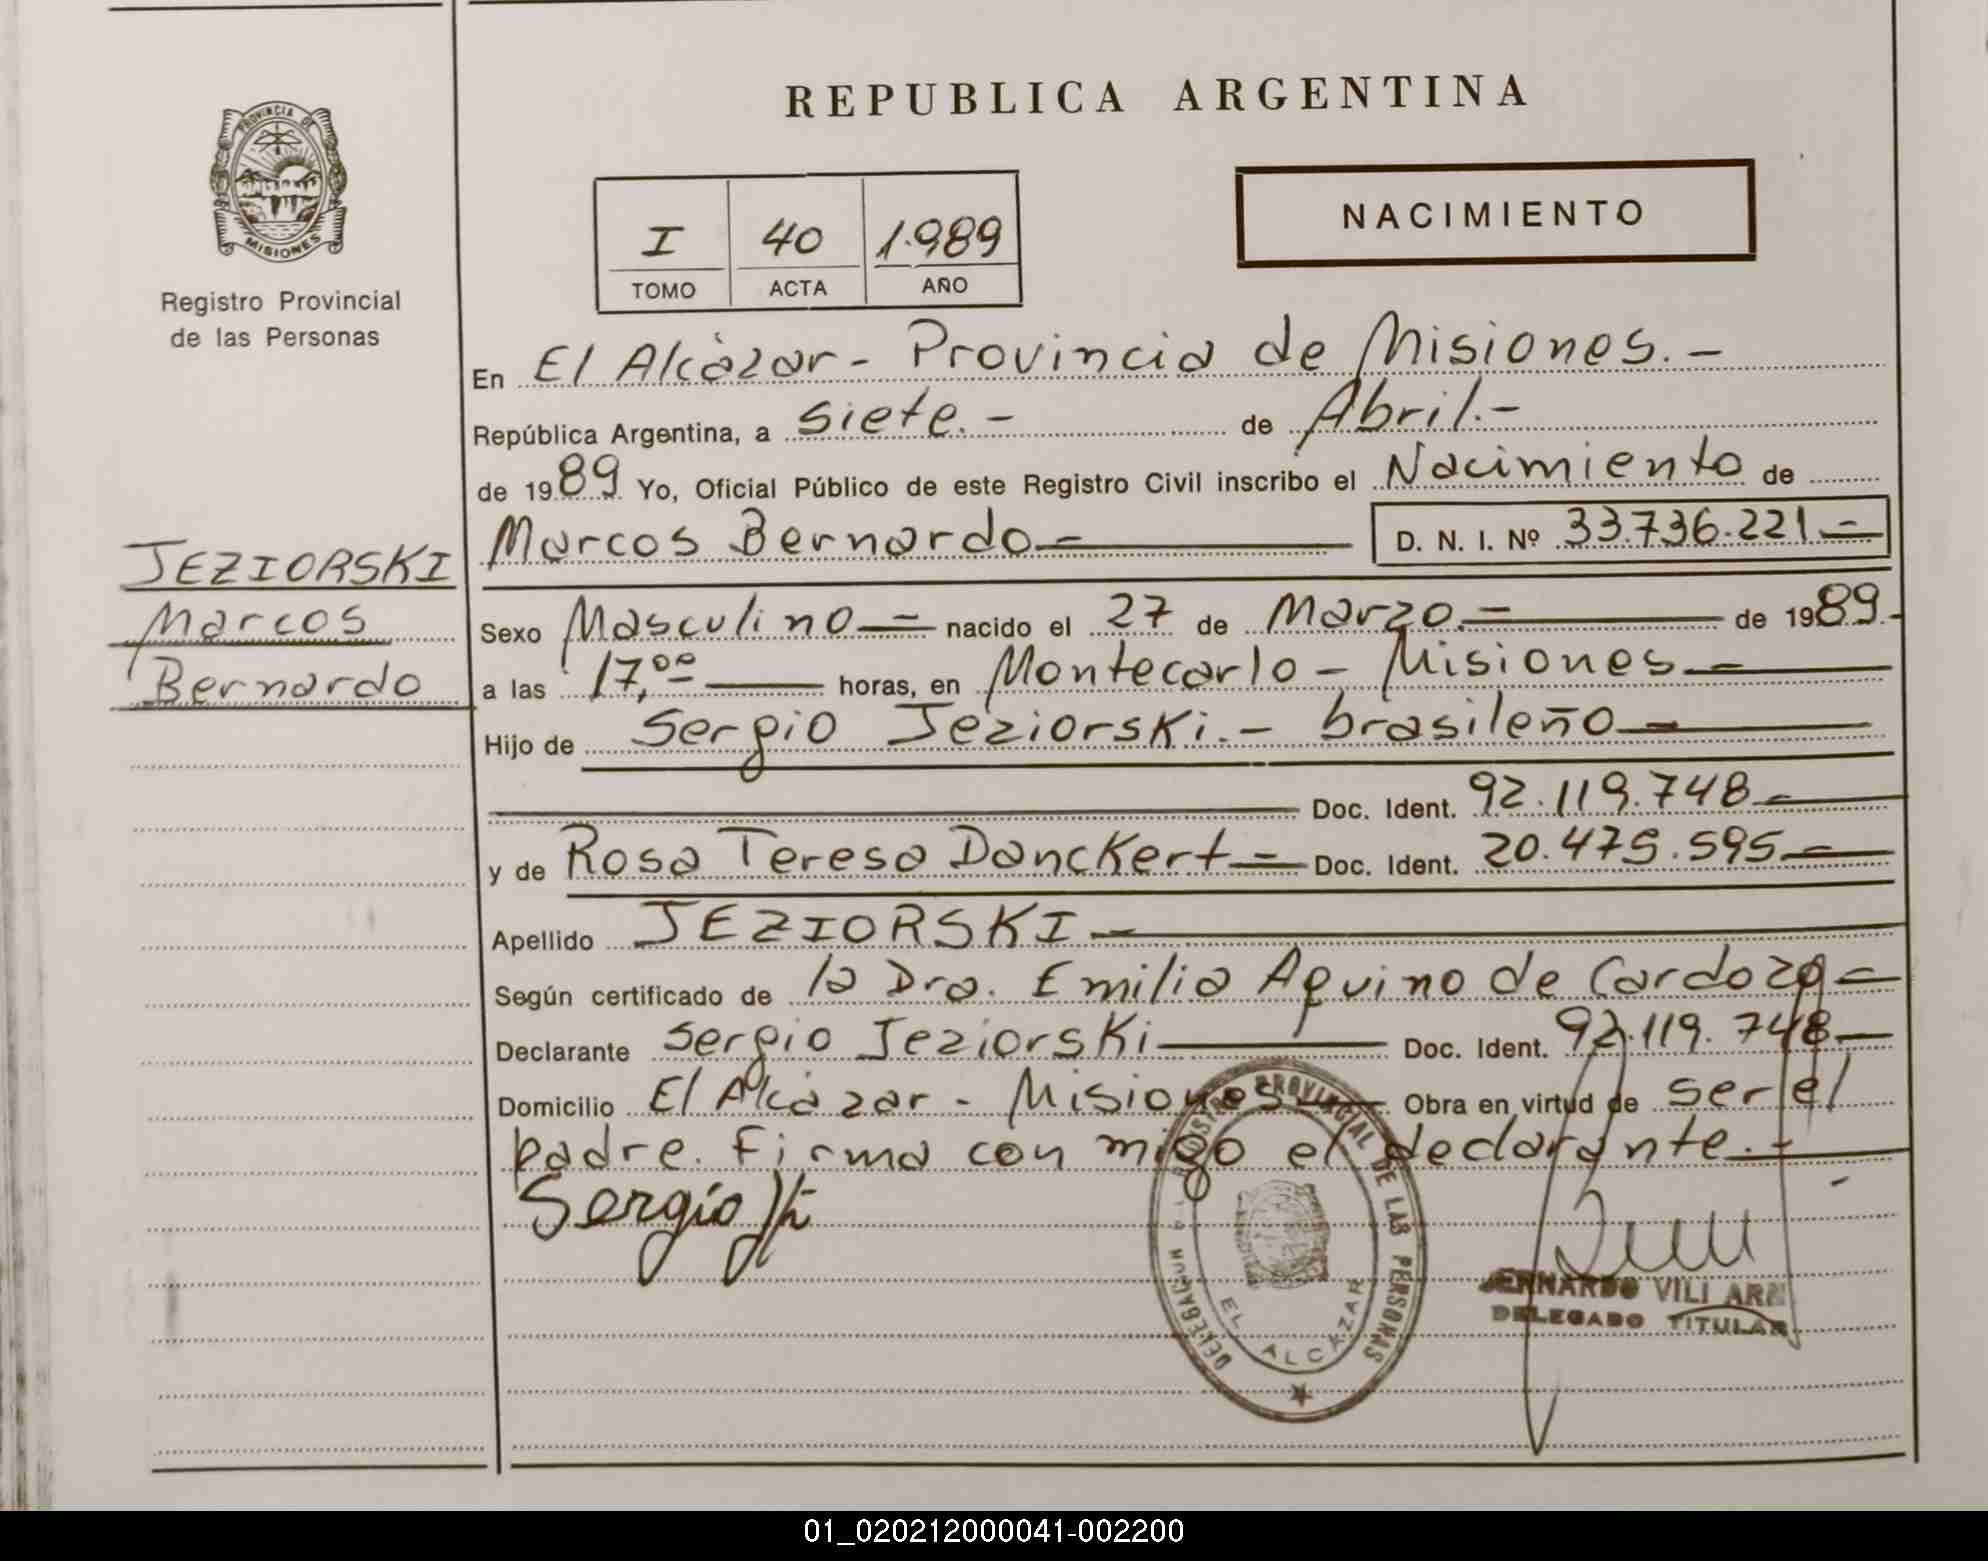 REPUBLICA ARGENTINA
PROVINCIA DE
MISIONES
Registro Provincial
de las Personas
NACIMIENTO
I 40 1.989
TOMO ACTA AÑO
En El Alcàzar - Provincia de Misiones. -
República Argentina, a siete. - de Abril. -
de 1989 Yo, Oficial Público de este Registro Civil inscribo el Nacimiento de
Marcos Bernardo - D. N. I. Nº 33.736.221 -
JEZIORSKI
Marcos
Bernardo
Sexo Masculino - nacido el 27 de Marzo. - de 1989. -
a las 17,00 horas, en Montecarlo - Misiones -
Hijo de Sergio Jeziorski. - brasileño -
Doc. Ident. 92.119.748 -
y de Rosa Teresa Danckert - Doc. Ident. 20.475.595 -
Apellido JEZIORSKI -
Según certificado de la Dra. Emilia Aquino de Cardozo -
Declarante Sergio Jeziorski Doc. Ident. 92.119.748 -
Domicilio El Alcàzar - Misiones - Obra en virtud de ser el
padre. Firma con migo el declarante. -
Sergio
REGISTRO PROVINCIAL DE LAS PERSONAS
DELEGACION
EL ALCAZAR
DELEGADO TITULAR
01_020212000041-002200